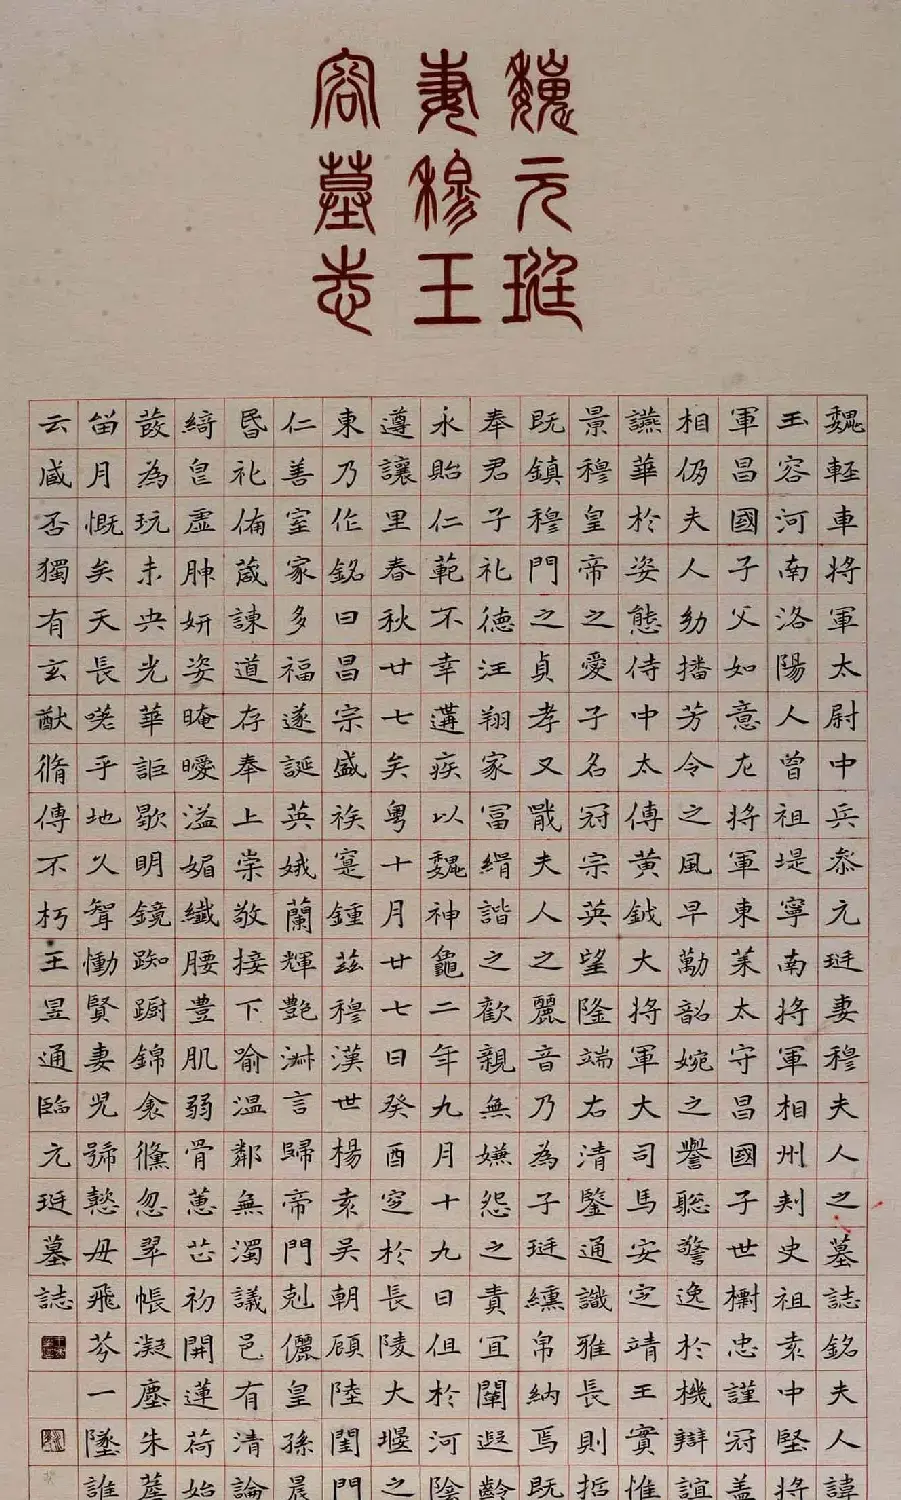 魏元珽
妻穆玉
容墓志
魏輕車將軍太尉中兵叅元珽妻穆夫人之墓誌銘夫人諱
玉容河南洛陽人曾祖堤寧南將軍相州刾史祖袁中堅將
軍昌國子父如意左將軍東萊太守昌國子世檦忠謹冠盖
相仍夫人幼播芳令之風早勵韶婉之譽聡警逸於機辯誼
讌華於姿態侍中太傅黃鉞大將軍大司馬安定靖王實惟
景穆皇帝之愛子名冠宗英望隆端右清鑒通識雅長則哲
既鎮穆門之貞孝又戢夫人之麗音乃為子珽纁帛納焉既
奉君子礼德汪翔家冨縜諧之歡親無嫌怨之責宜闡遐齡
永貽仁範不幸遘疾以魏神龜二年九月十九日徂於河陰
遵讓里春秋廿七矣粵十月廿七日癸酉窆於長陵大堰之
東乃作銘曰昌宗盛族寔鍾茲穆漢世楊袁吳朝顧陸閨門
仁善室家多福遂誕英娥蘭輝艷淋言歸帝門剋儷皇孫晨
昬礼俻箴諫道存奉上崇敬接下喻溫鄰無濁議邑有清論
綺皃虛肿妍姿晻曖溢媚纖腰豊肌弱骨蕙芯初開蓮荷始
蕟為玩未央光華詎歇明鏡踟蹰錦衾儵忽翠帳凝塵朱
畄月慨矣天長嗟乎地久聟慟賢妻児號慈母飛芬一墜誰
云臧否獨有玄猷脩傳不朽王昱通臨元珽墓誌